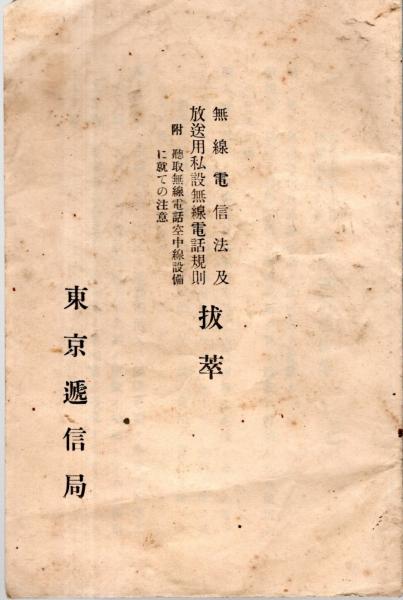 無線電信法及
放送用私設無線電話規則
拔萃
附 聽取無線電話空中線設備
に就ての注意
東京遞信局